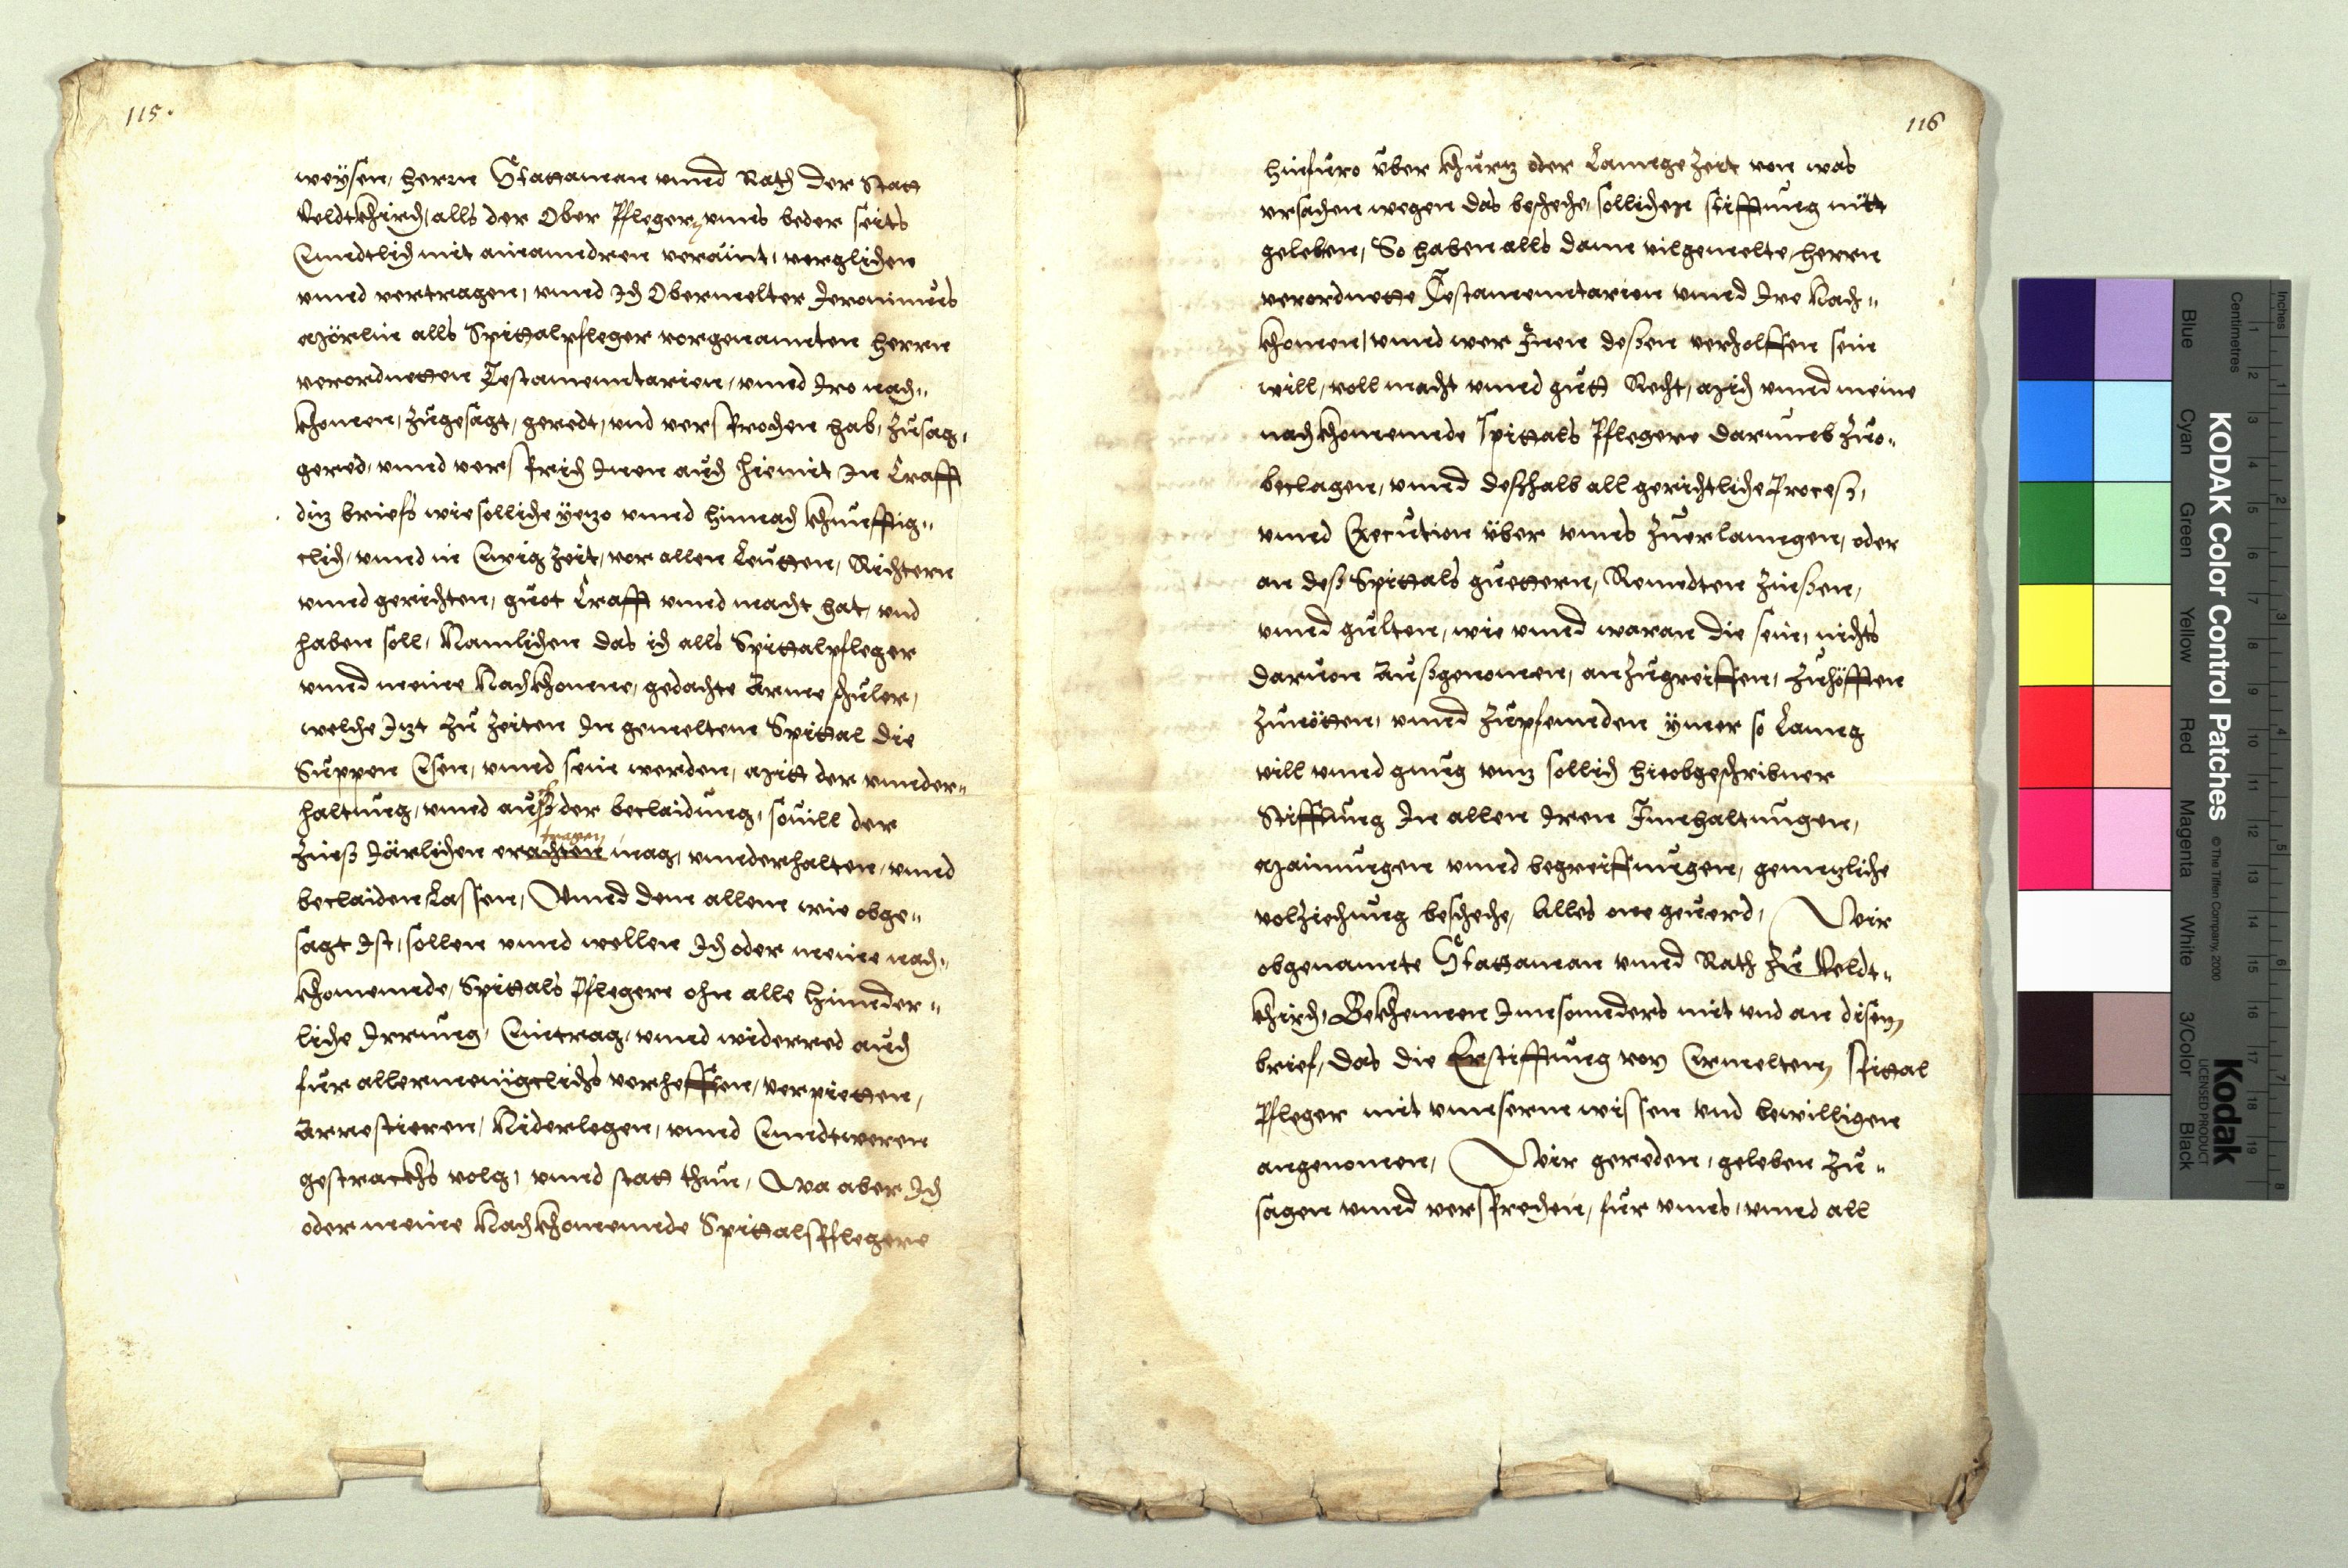 115.
weysen, herrn Stattaman vnnd Rath der Statt
Veldtkhirch, alls der Ober Pfleger, vnns beder seits
Enndtlich mit ainanndren veraint, verglichen
vnnd vertragen, vnnd Ich Obermelter Jeronimus
Mörlin alls Spittalpfleger vorgenannten herrn
verordnetten Testamenntarien, vnnd Iro nach„
khomen, zugesagt, geredt, vnd versprochen hab, zusag,
gered, vnnd versprich Inen auch hiemit In Crafft
diz briefs wie solliche yezo vnnd hinnach khünfftig„
clich, vnnd in Ewig zeit, vor allen Leutten, Richtern
vnnd gerichten, guot Crafft vnnd macht hat, vnd
haben soll, Namlichen das ich alls Spittalpfleger
vnnd meine Nachkhomene, gedachte Arme schuler,
welche Jzt zu zeiten In gemeltem Spittal die
Suppen Esen, vnnd sein werden, Mitt der vnnder„
haltung, vnnd auß der beclaidung, souill der
tragen
Zinß Järlichen erachten mag, vnnderhalten, vnnd
beclaiden Lassen, Vnnd dem allem wie obge„
sagt Ist, sollen vnnd wellen Ich oder meine nach„
khomennde, Spittals Pflegere ohn alle hinnder„
liche Irrung, Eintrag, vnnd widerred auch
für allermenigclichs verhefften, verpietten,
Arrestieren, Niderlegen, vnnd Enndtweren
gestrackhs volg, vnnd statt thun, Wa aber Ich
oder meine Nachkhomennde SpittalsPflegere
116
hinfuro über khurz oder Lannge zeit von was
vrsachen wegen das beschehe, sollicher stifftung nitt
geleben, So haben alls dann vilgemelte herrn
verordnette Testamenntarien vnnd Ire Nach„
khomen, vnnd wer Inen deßen verholffen sein
will, voll macht vnnd gutt Recht, Mich vnnd meine
nachkhomennde Spittals Pflegere darumb zuo„
beclagen, vnnd deßhalb all gerichtliche Proceß,
vnnd Execution über vnns zuerlanngen, oder
an deß Spittals guettern, Renndten Zinßen,
vnnd gülten, wie vnnd waran die sein, nichts
daruon Außgenomen, anzugreiffen, zuhöfften
zunötten, vnnd zupfennden ymer so Lanng
vill vnnd gnug vnnz sollich hieobgeschribner
Stifftung In allen Iren Innhaltungen,
Mainungen vnnd begreiffnugen, gennzliche
volziechung beschehe, Alles one geuerd, Wir
obgenannte Stattaman vnnd Rath zu Veldt„
khirch, Bekhennen Innsonnders mit vnd an disem
brief, das die Erstifftung von Ermeltem Spittal
Pfleger mit vnnserm wissen vnd bewilligen
angenomen, Wir gereden, geloben zu„
sagen vnnd versprechen, für vnns, vnnd all
KODAK Color Control Patches
© The Tiffen Company, 2000
Kodak
LICENSED PRODUCT
Inches
Centimetres
1 2 3 4 5 6 7 8 9 10 11 12 13 14 15 16 17 18 19
1 2 3 4 5 6 7 8
Blue
Cyan
Green
Yellow
Red
Magenta
White
3/Color
Black